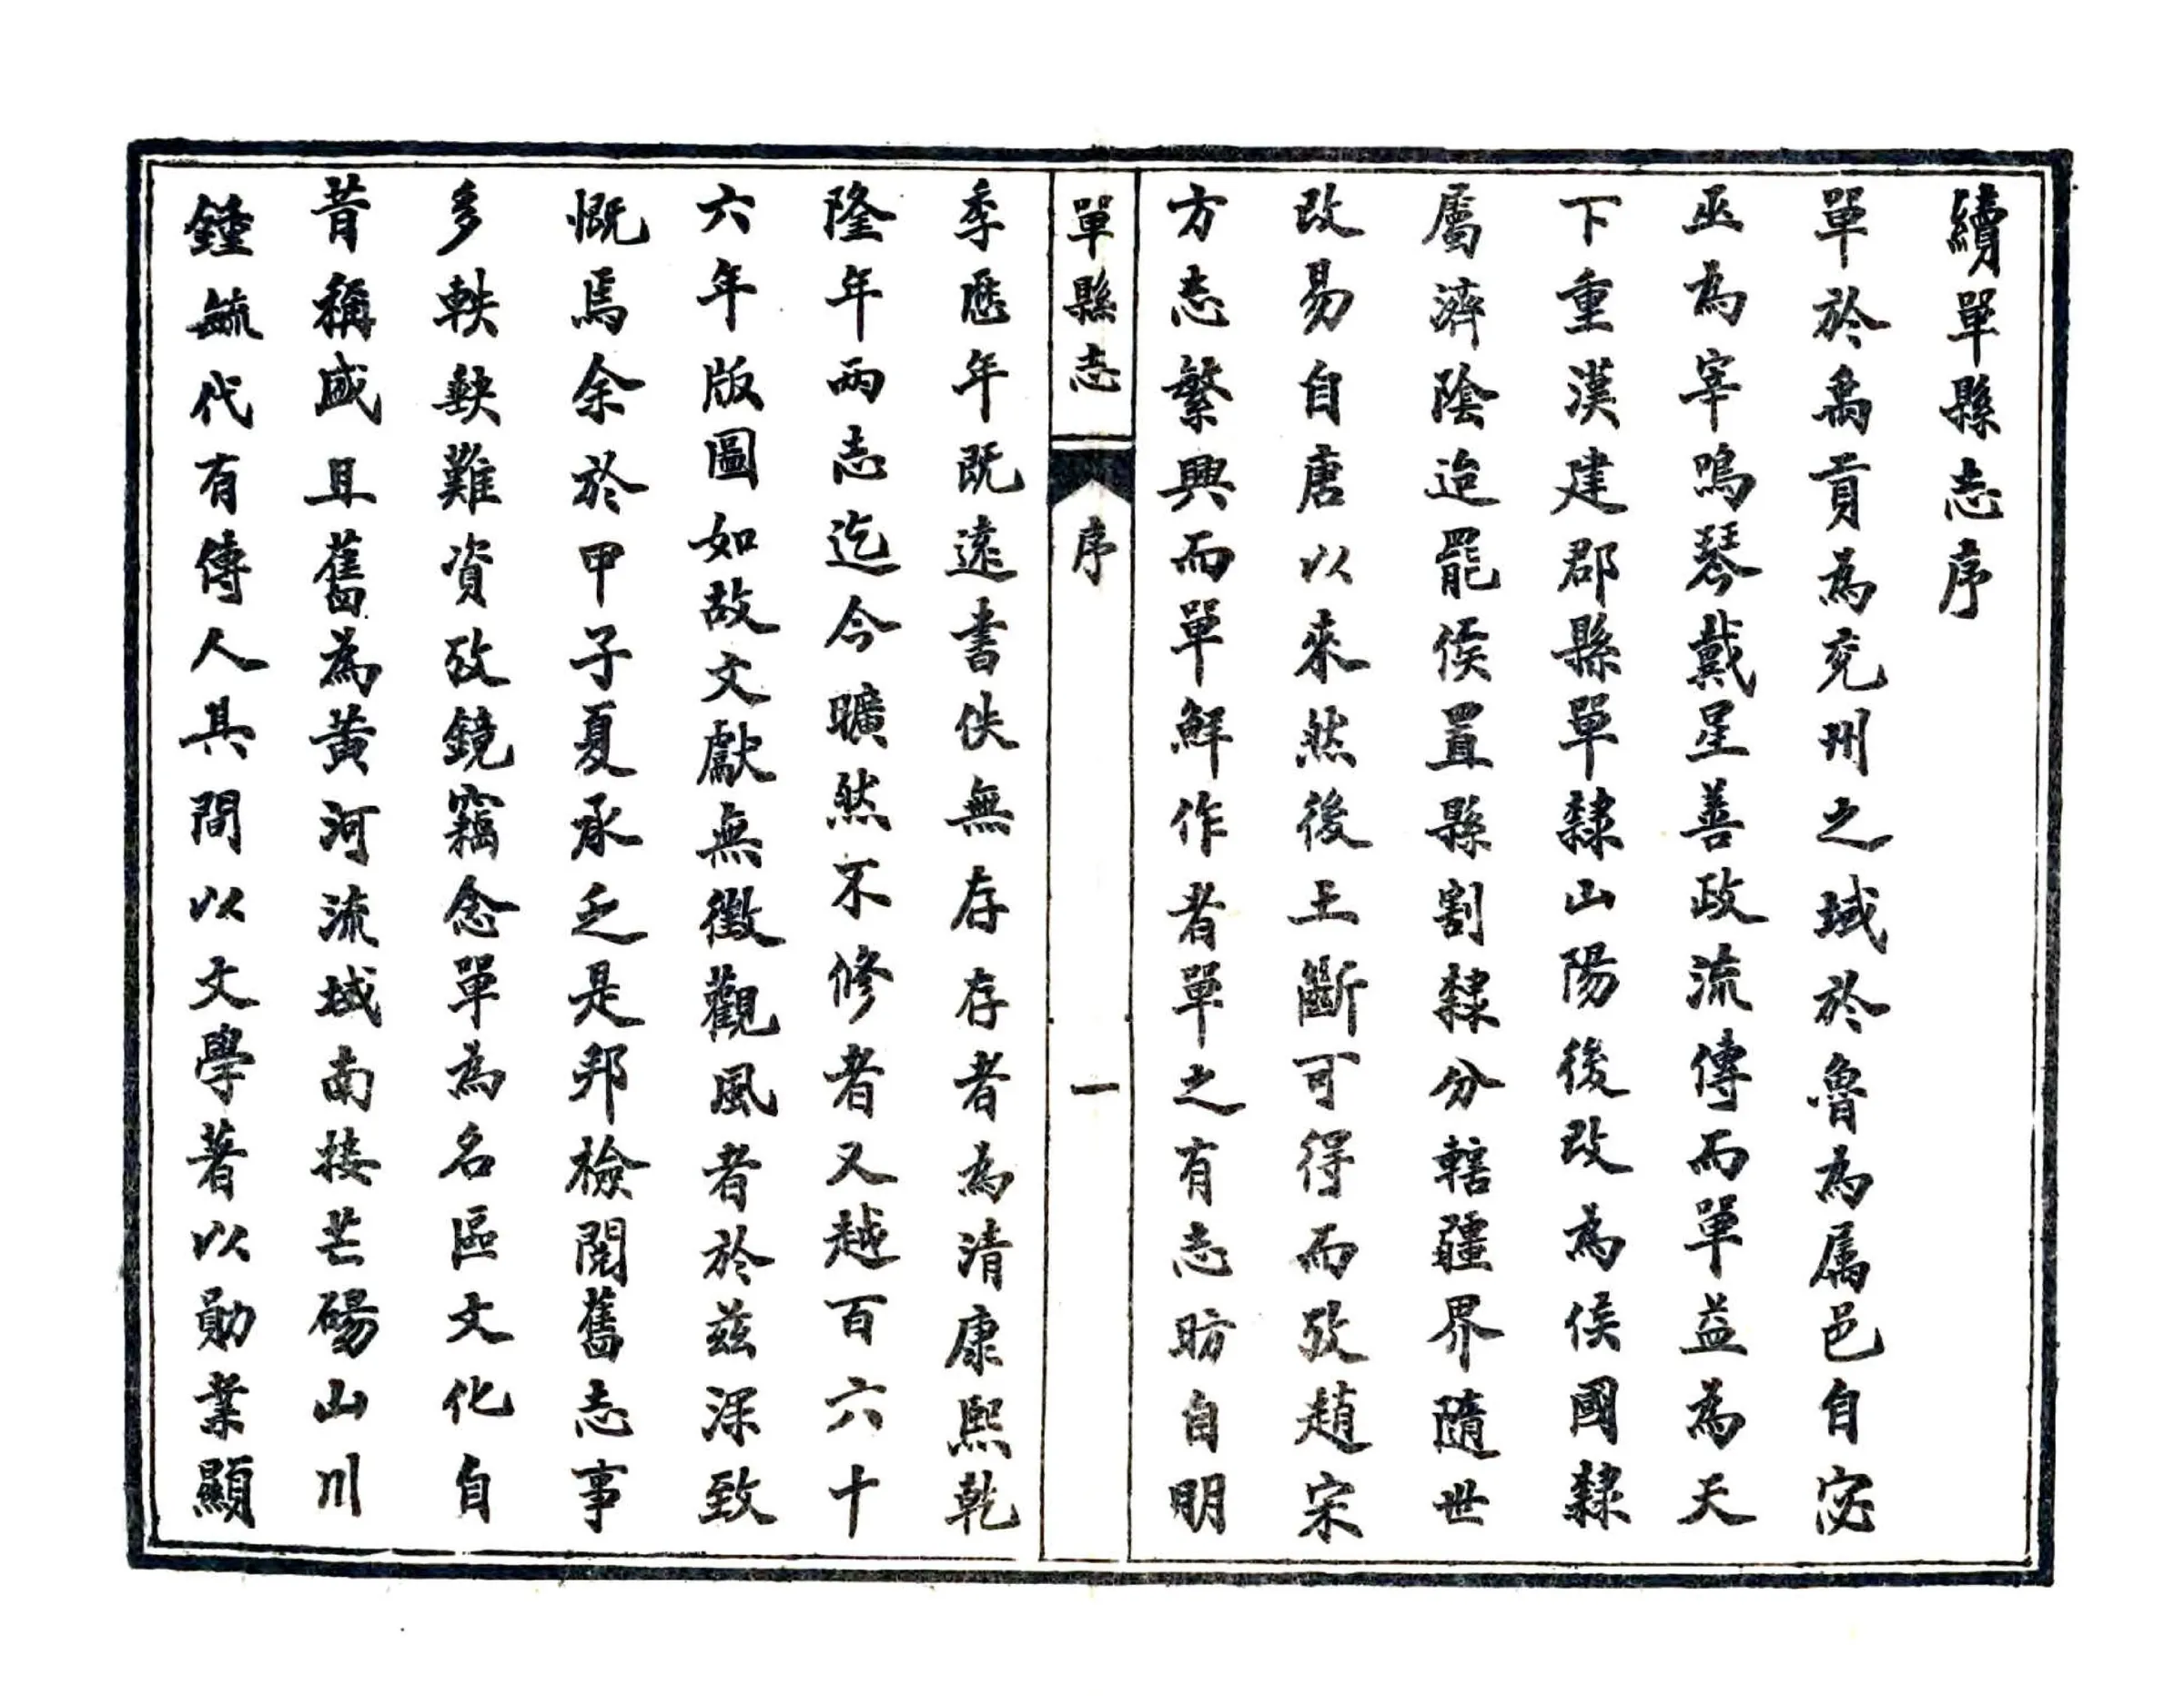 續單縣志序
單於禹貢為兗州之域於魯為属邑自宓
巫為宰鳴琴戴星善政流傳而單益為天
下重漢建郡縣單隸山陽後改為侯國隸
屬濟陰迨罷侯置縣割隸分轄疆界隨世
改易自唐以來然後王斷可得而攷趙宋
方志繁興而單鮮作者單之有志昉自明
單縣志
序
一
季歷年既遠書佚無存存者為清康熙乾
隆年兩志迄今曠然不修者又越百六十
六年版圖如故文獻無徵觀風者於茲深致
慨焉余於甲子夏承乏是邦檢閱舊志事
多軼缺難資攷鏡竊念單為名區文化自
昔稱盛且舊為黃河流域南接芒碭山川
鍾毓代有傳人其間以文學著以勛業顯